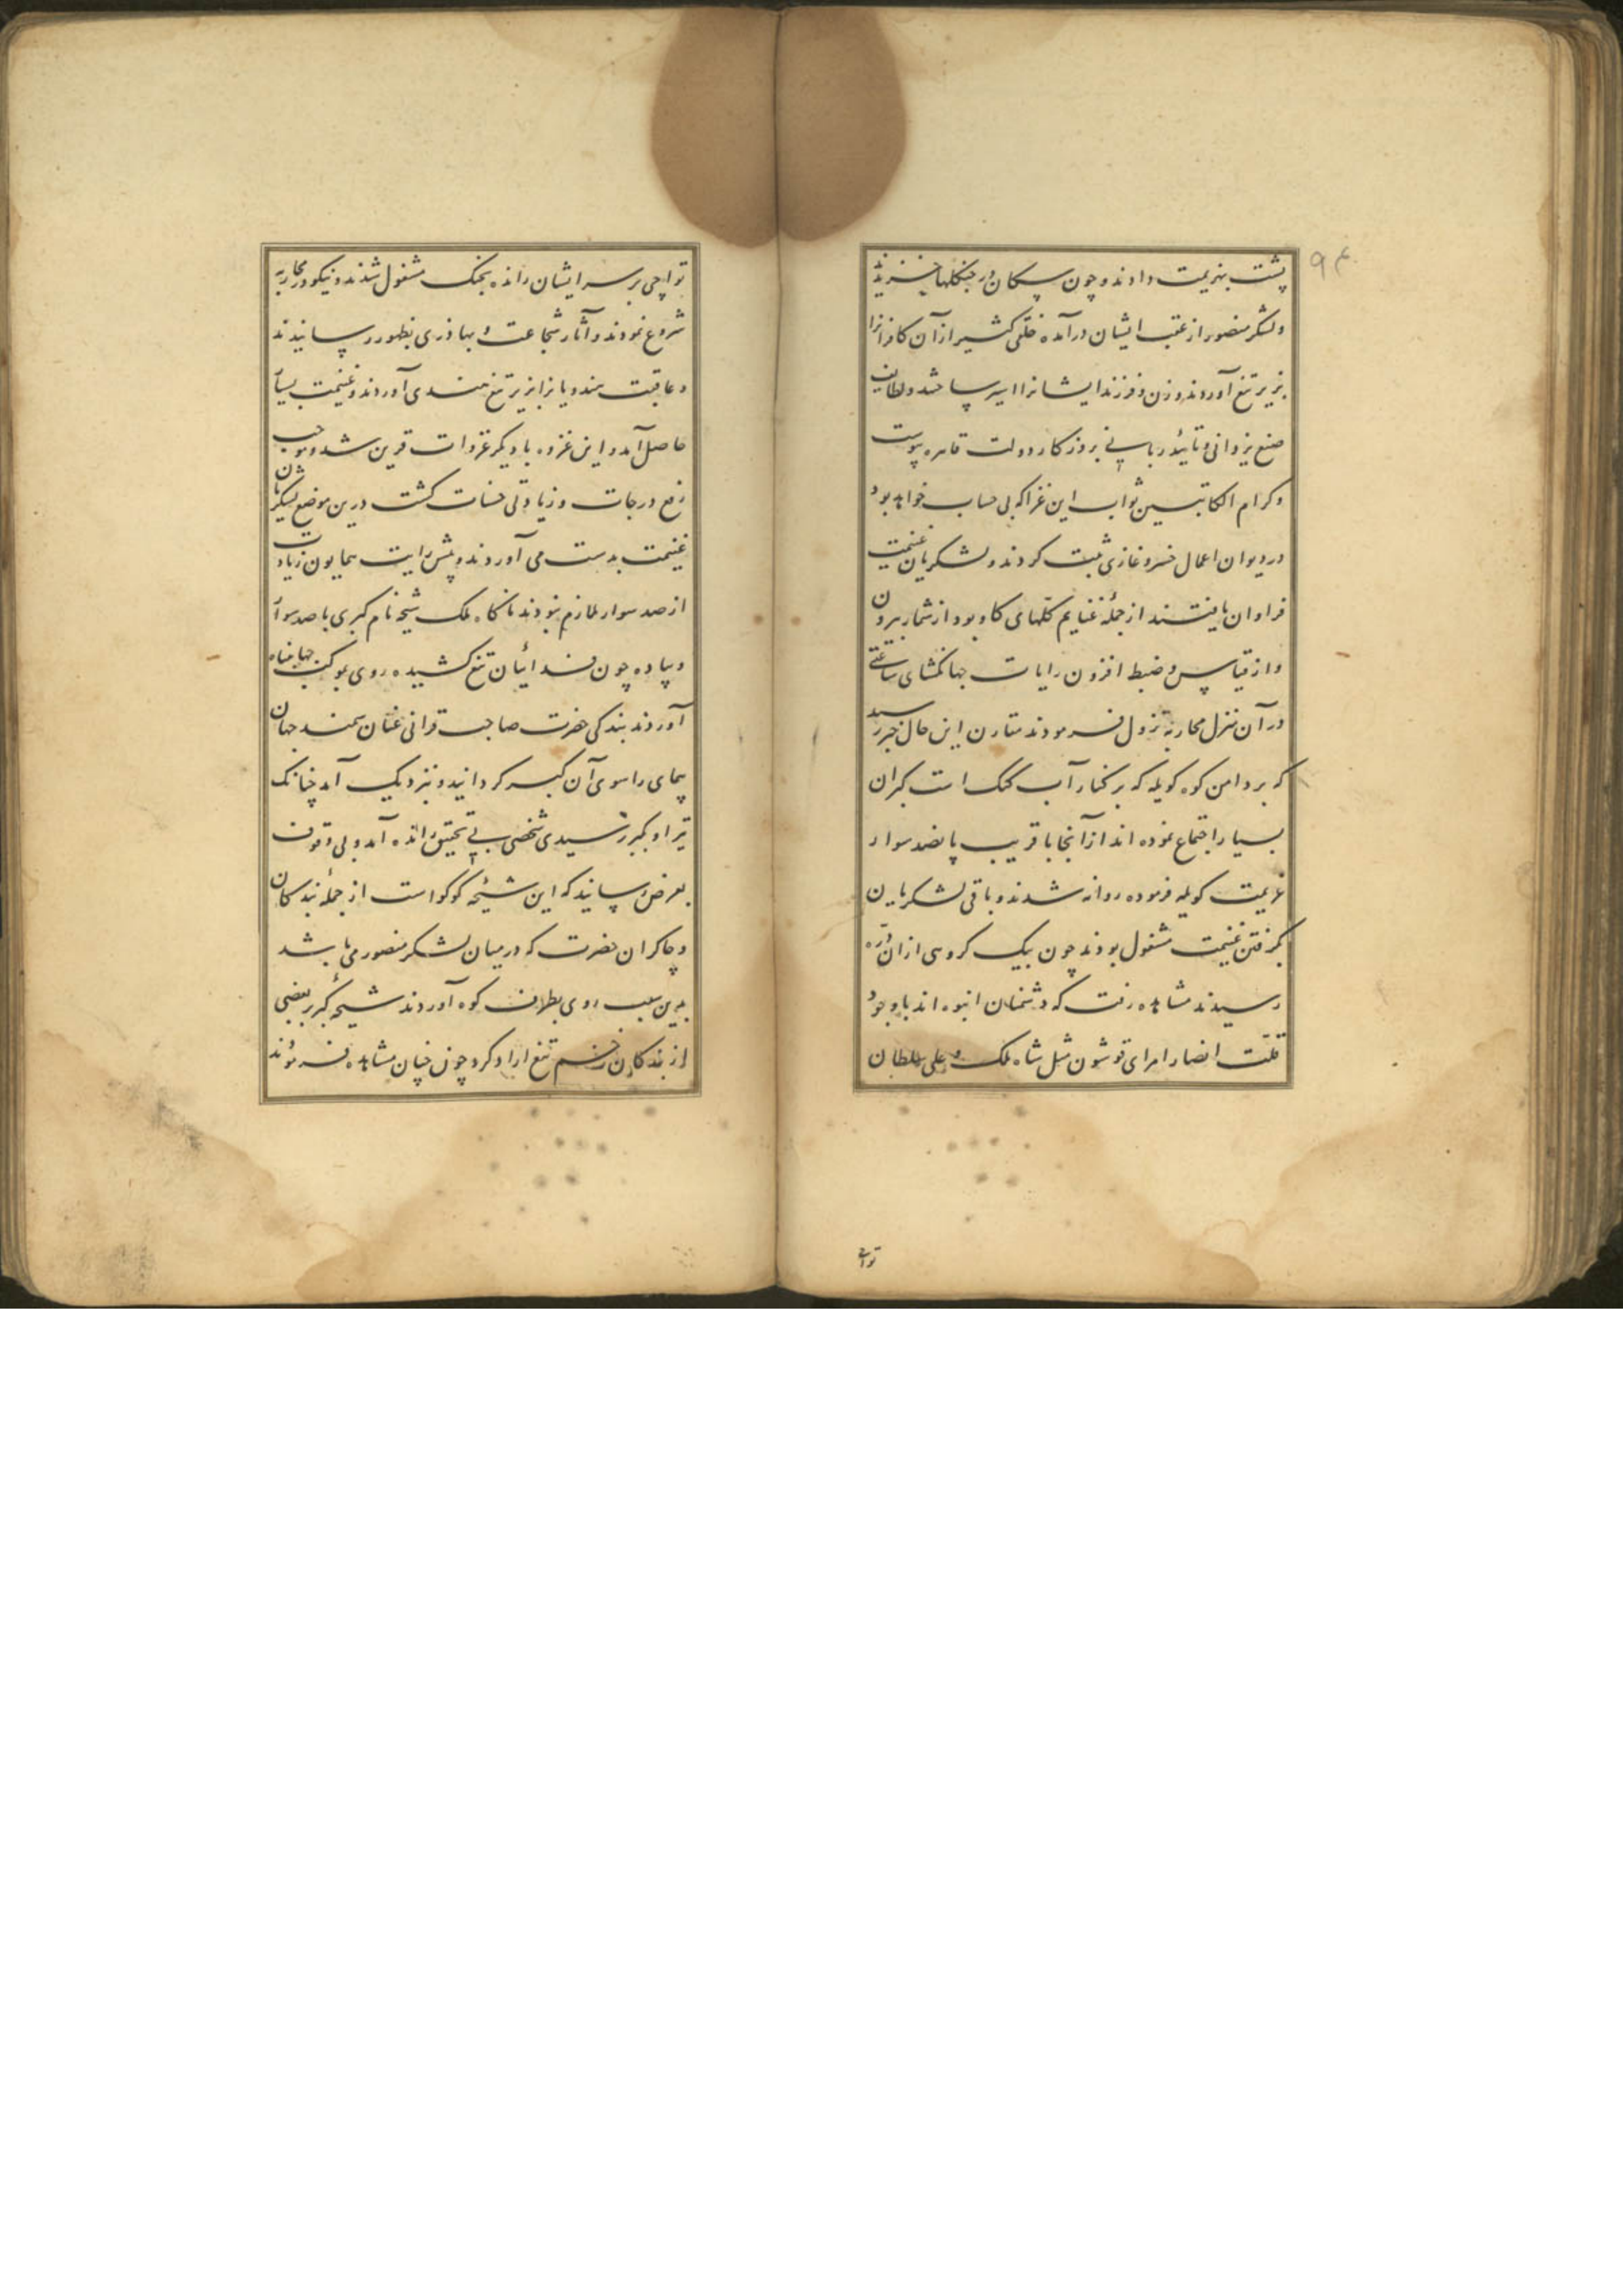 ۹۴
پشت بهزیمت دادند و چون سکان در جنکلها خزیدند
و لشکر منصور از عقب ایشان درآمده خلقی کثیر از آن کافرانرا
بزیر تیغ آوردند و زن و فرزند ایشانرا اسیر ساختند و لطایف
صنع یزدانی و تائید ربانی بروزکار دولت قاهره پیوست
و کرام الکاتبین ثواب این غزا که بی حساب خواهد بود
در دیوان اعمال خسرو غازی ثبت کردند و لشکریان غنیمت
فراوان یافتند از جمله غنایم کلهای کاو بود از شمار بیرون
و از قیاس و ضبط افزون رایات جهانکشای ساعتی
در آن منزل محاربه نزول فرمودند مقارن این حال خبر رسید
که بر دامن کوه کوپله که بر کنار آب کنک است کبران
بسیار اجتماع نموده اند از آنجا با قریب پانصد سوار
عزیمت کوپله فرموده روانه شدند و باقی لشکریان
بکرفتن غنیمت مشغول بودند چون بیک کروهی از ان دره
رسیدند مشاهده رفت که دشمنان انبوه اند باوجود
قلت انصار امرای قوشون مثل شاه ملک و علی سلطان
توا
تواچی بر سر ایشان رانده بجنک مشغول شدند و نیکو در محاربه
شروع نمودند و آثار شجاعت و بهاذری بظهور رسانیدند
و عاقبت هندویانرا بزیر تیغ هندی آوردند و غنیمت بسیار
حاصل آمد و این غزوه با دیکر غزوات قرین شد و موجب
رفع درجات و زیادتی حسنات کشت درین موضع لشکریان
غنیمت بدست می آوردند و پیش رایت همایون زیادت
از صد سوار ملازم نبودند ناکاه ملک شیخه نام کبری با صد سوار
و پیاده چون فدائیان تیغ کشیده روی بموکب جهانپناه
آوردند بندکی حضرت صاحب قرانی عنان سمند جهان
پیمای را سوی آن کبر کردانید و بنزدیک آمد چنانک
تیر او بکبر رسیدی شخصی بی تحقیق رانده آمد و بی وقوف
بعرض رسانید که این شیخه کوکو است از جمله بندکان
و چاکران حضرت که در میان لشکر منصور می باشد
بدین سبب روی بطرف کوه آوردند شیخه کبر بعضی
از بندکان زخم تیغ ازاد کرد چون چنان مشاهده فرموند